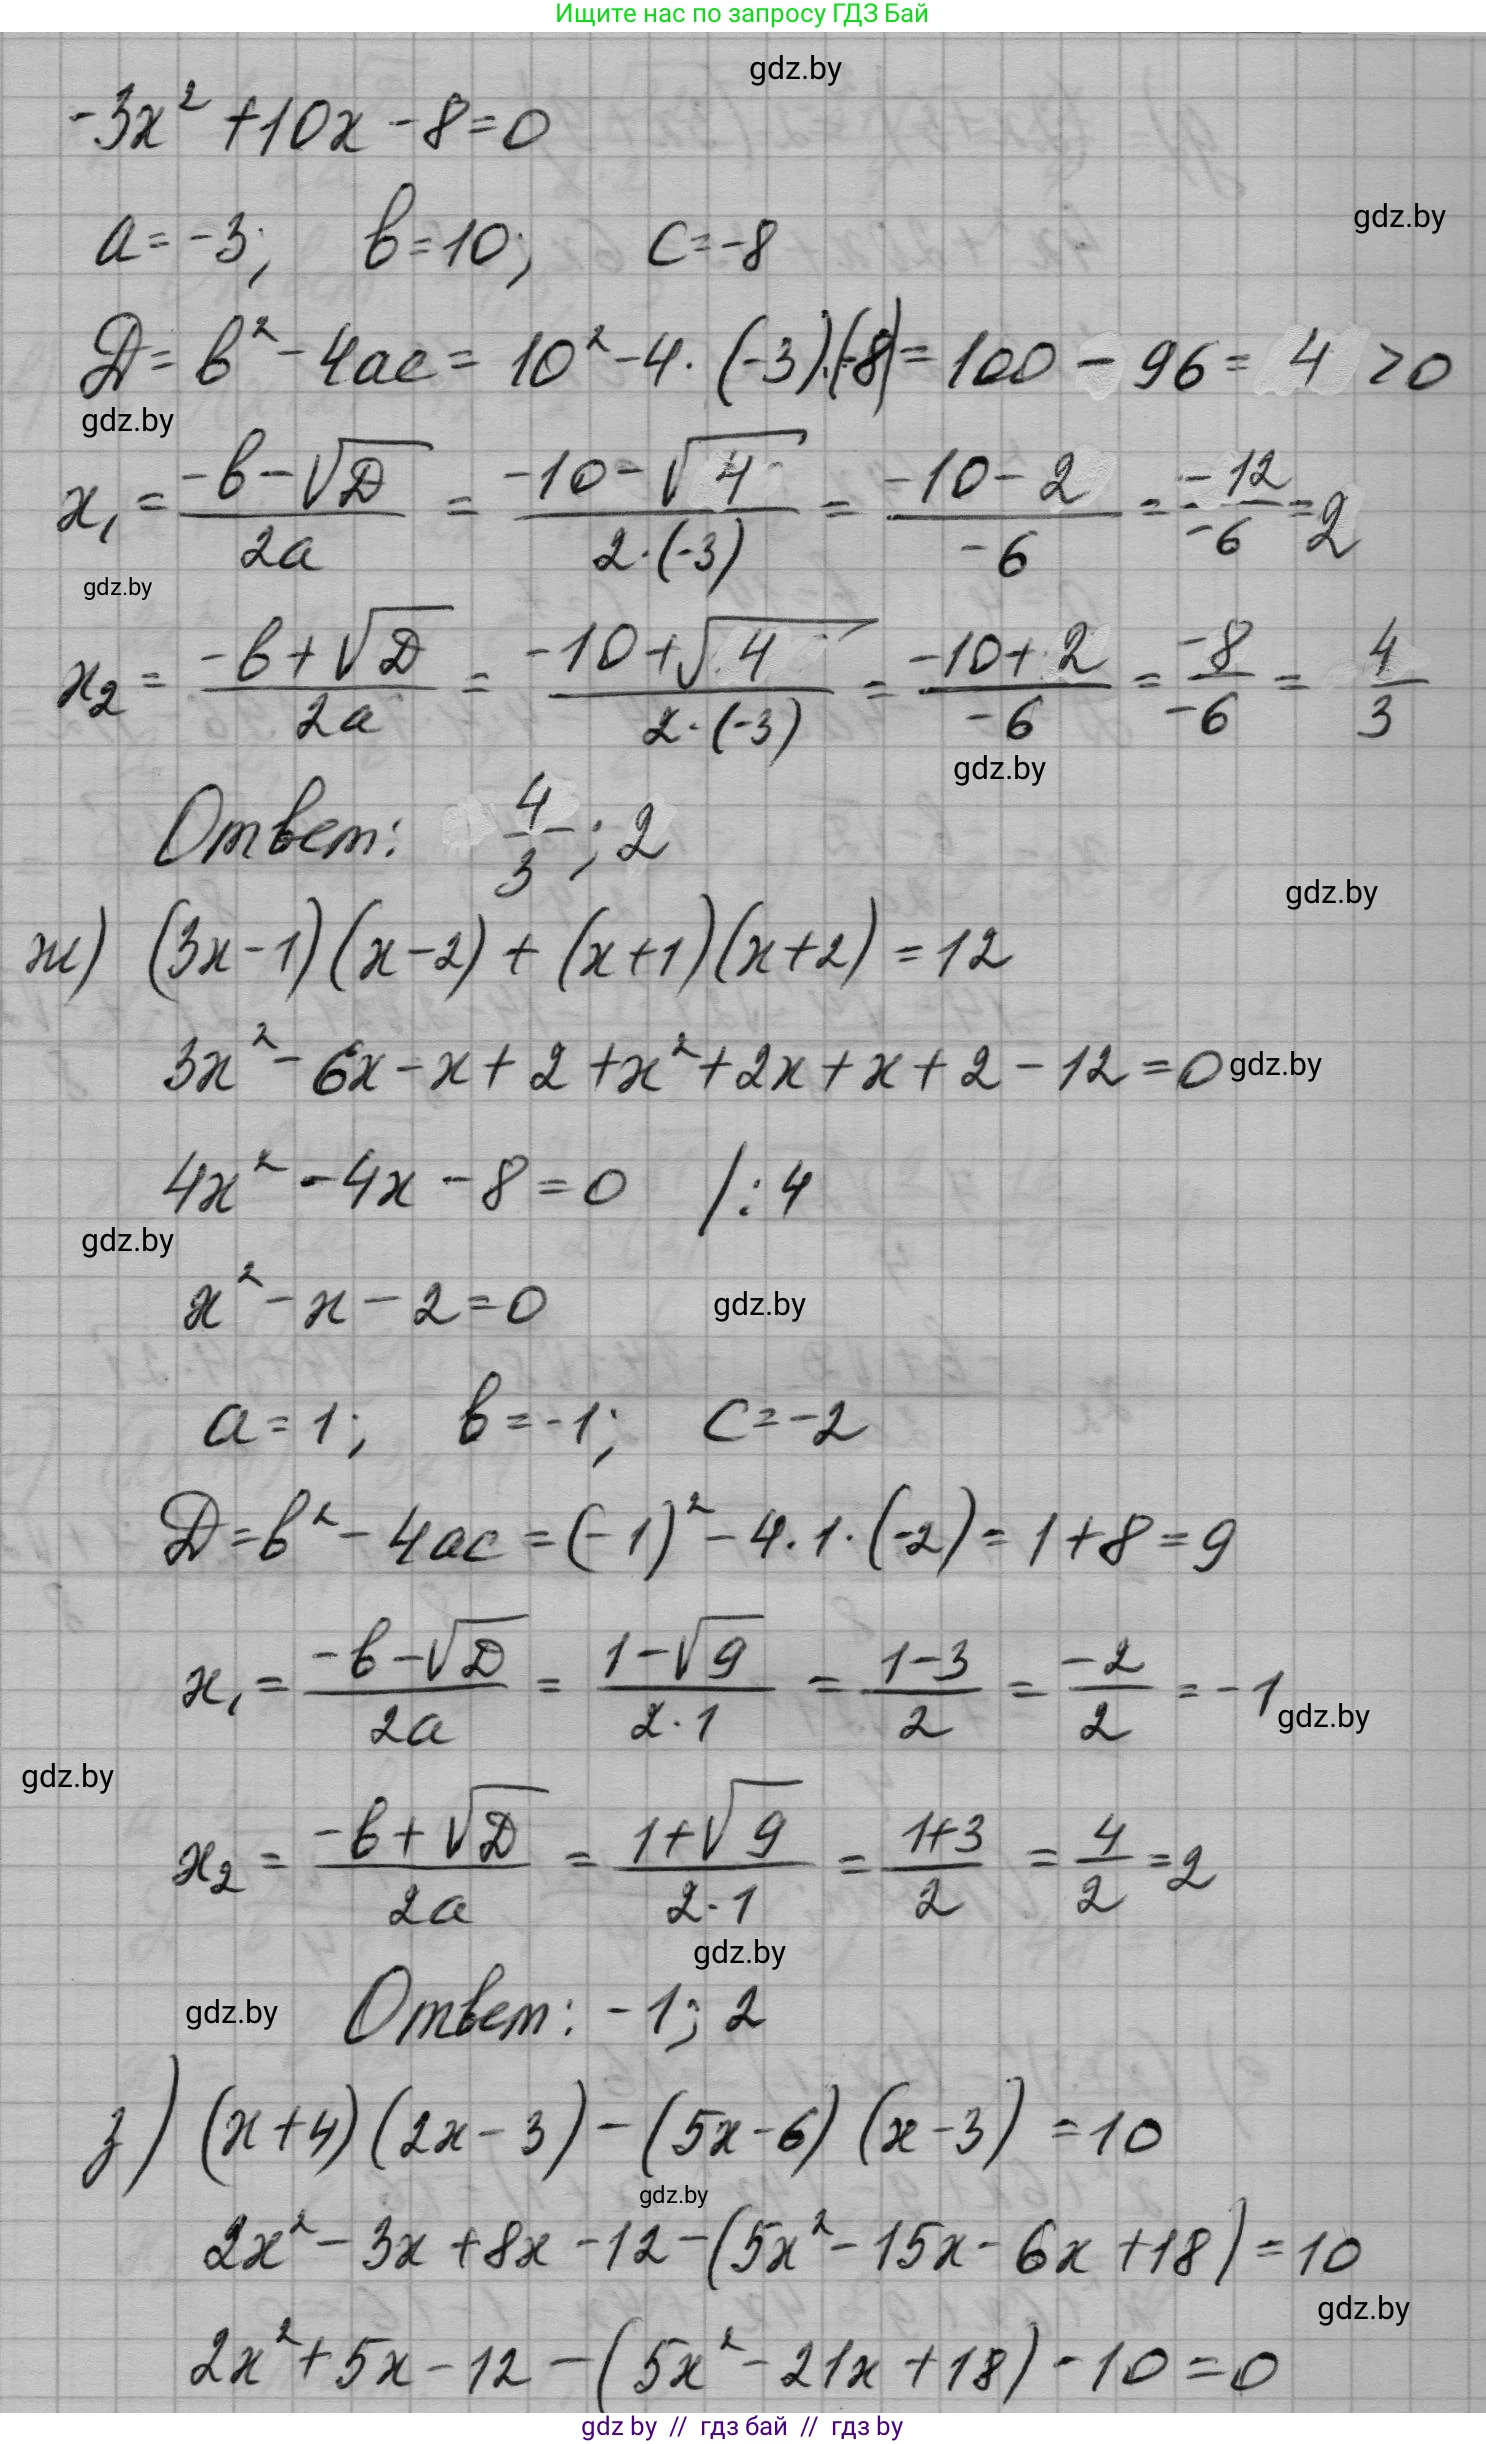 Ищите нас по запросу ГДЗ Бай
gdz.by
-3x² + 10x - 8 = 0
gdz.by
a = -3; b = 10; c = -8
D = b² - 4ac = 10² - 4 · (-3) · (-8) = 100 - 96 = 4 > 0
gdz.by
x₁ = (-b - √D)/(2a) = (-10 - √4)/(2 · (-3)) = (-10 - 2)/(-6) = (-12)/(-6) = 2
gdz.by
x₂ = (-b + √D)/(2a) = (-10 + √4)/(2 · (-3)) = (-10 + 2)/(-6) = (-8)/(-6) = 4/3
gdz.by
Ответ: 4/3; 2
gdz.by
ж) (3x - 1)(x - 2) + (x + 1)(x + 2) = 12
3x² - 6x - x + 2 + x² + 2x + x + 2 - 12 = 0 gdz.by
4x² - 4x - 8 = 0 /: 4
gdz.by
x² - x - 2 = 0 gdz.by
a = 1; b = -1; c = -2
D = b² - 4ac = (-1)² - 4 · 1 · (-2) = 1 + 8 = 9
x₁ = (-b - √D)/(2a) = (1 - √9)/(2 · 1) = (1 - 3)/2 = (-2)/2 = -1 gdz.by
gdz.by
x₂ = (-b + √D)/(2a) = (1 + √9)/(2 · 1) = (1 + 3)/2 = 4/2 = 2
gdz.by
gdz.by Ответ: -1; 2
з) (x + 4)(2x - 3) - (5x - 6)(x - 3) = 10
gdz.by
2x² - 3x + 8x - 12 - (5x² - 15x - 6x + 18) = 10
gdz.by
2x² + 5x - 12 - (5x² - 21x + 18) - 10 = 0
gdz by // гдз бай // гдз by